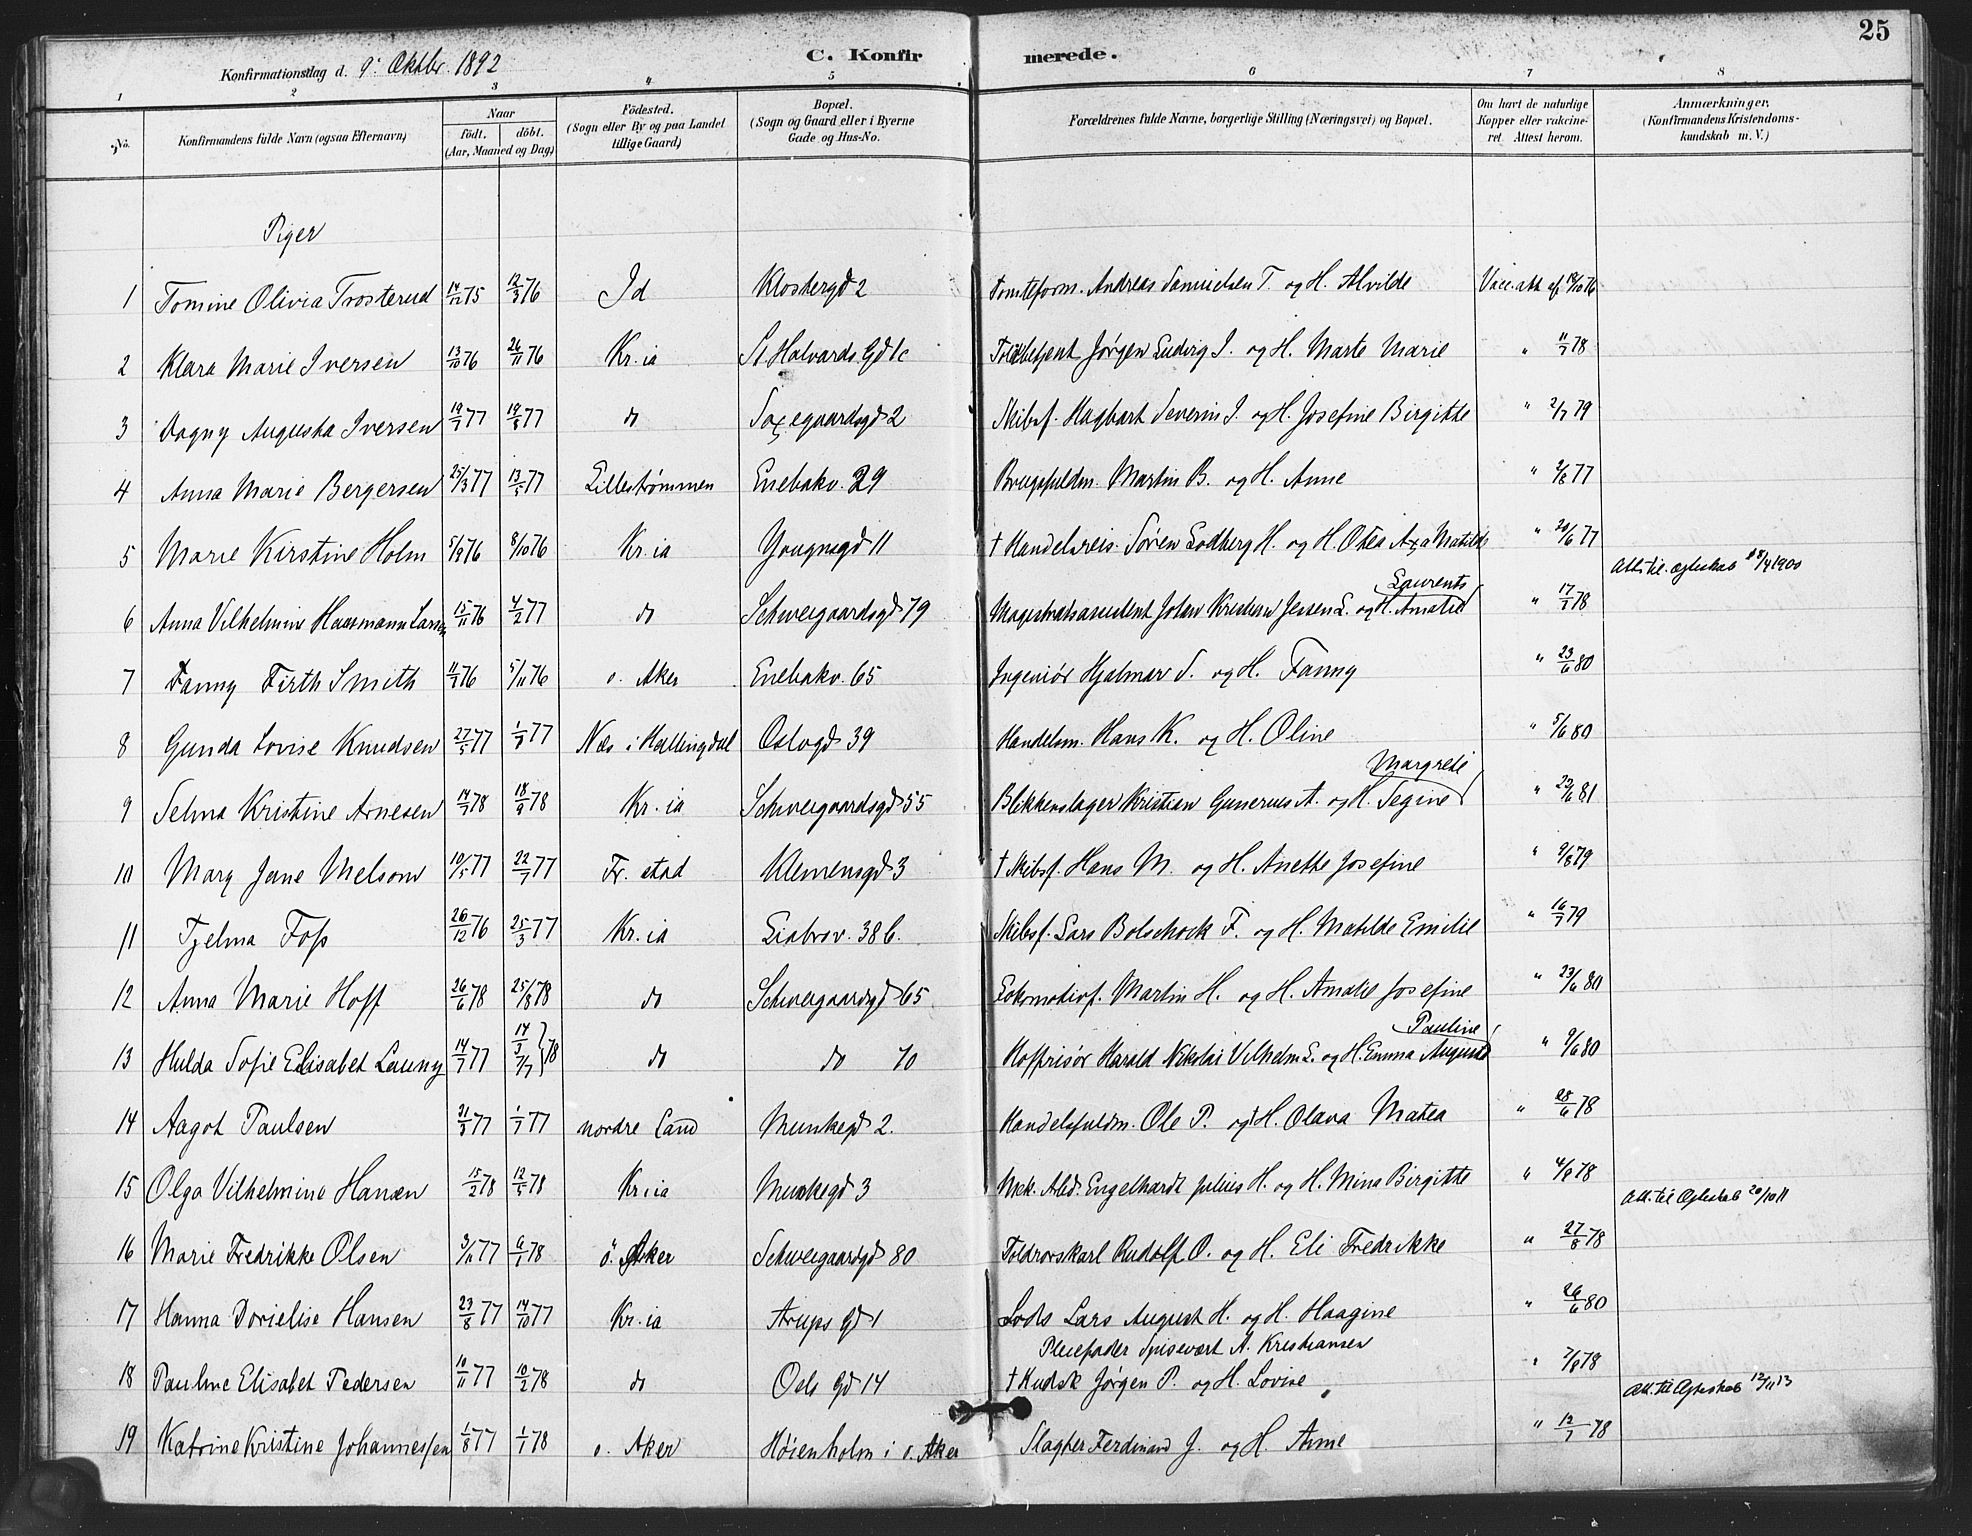 25
Konfirmationsdag d. 9. Oktbr. 1892
C. Konfirmerede.
1 2 3 4 5 6 7 8
No. Konfirmandens fulde Navn (ogsaa Efternavn) Naar født. døbt. (Aar, Maaned og Dag) Fødested. (Sogn eller By og paa Landet tillige Gaard) Bopæl. (Sogn og Gaard eller i Byerne Gade og Hus-No. Forældrenes fulde Navne, borgerlige Stilling (Næringsvei) og Bopæl. Om havt de naturlige Kopper eller vakcineret Attest herom. Anmærkninger. (Konfirmandens Kristendomskundskab m. V.)
Piger
1 Tomine Olivia Trosterud 14/12 75 12/3 76 Id Klostergd 2 Tomteform. Andreas Samuelsen T. og H. Alvilde Vacc. att af 19/10 76
2 Klara Marie Iversen 13/10 76 26/11 76 Kr.ia St. Halvards Gd 1c Toldbetjent Jørgen Ludvig I. og H. Marte Marie " 11/7 78
3 Dagny Augusta Iversen 19/7 77 19/8 77 do Saxegaardsgd 2 Skibsf. Hagbart Severin I. og H. Josefine Birgitte " 2/7 79
4 Anna Marie Bergersen 25/3 77 13/5 77 Lillestrømmen Enebakv. 29 Brugsfuldm. Martin B. og H. Anne " 2/8 77
5 Marie Kirstine Holm 5/9 76 8/10 76 Kr.ia Youngsgd 11 † Handelsreis. Søren Lodberg H. og H. Otea Axa Matilde " 20/6 77
Att. til Ægteskab 18/4 1900
Laurents
6 Anna Vilhelmine Haasmann Larsen 15/11 76 4/2 77 do Schweigaardsgd 79 Magistratsassistent Johan Kristian Jessen L. og H. Amalie " 17/7 78
7 Fanny Firth Smith 11/7 76 5/11 76 o. Aker Enebakv. 65 Ingeniør Hjalmar S. og H. Fanny " 23/6 80
8 Gunda Lovise Knudsen 27/5 77 1/7 77 Næs i Hallingdal Oslogd 39 Handelsm. Hans K. og H. Oline " 5/6 80
Margrete
9 Selma Kristine Arnesen 14/7 78 18/9 78 Kr.ia Schweigaardsgd 55 Blikkenslager Kristian Gunerius A. og H. Segine " 22/6 81
10 Mary Jane Melsom 10/5 77 22/7 77 Fr. stad Klemensgd 3 † Skibsf. Hans M. og H. Anette Josefine " 9/8 79
11 Tjelma Foss 26/12 76 25/3 77 Kr.ia Liabrov. 38 b. Skibsf. Lars Bolschock F. og H. Matilde Emilie " 16/7 79
12 Anna Marie Hoff 26/6 78 25/8 78 do Schweigaardsgd 65 Lokomotivf. Martin H. og H. Amalie Josefine " 23/6 80
Pauline
13 Hulda Sofie Elisabet Launy 14/7 77 14/3 7/7 } 78 do do 70 Hoffrisør Harald Nikolai Vilhelm L. og H. Emma Augusta " 9/6 80
14 Aagot Paulsen 31/3 77 1/7 77 nordre Land Munkegd 2. Handelsfuldm. Ole P. og H. Olava Matea " 28/6 78
15 Olga Vilhelmine Hansen 15/2 78 12/5 78 Kr.ia Munkegd 3 Mek. Arbd. Engelhardt Julius H. og H. Mina Birgitte " 4/9 78
Att. til Ægteskab 20/10 11
16 Marie Fredrikke Olsen 3/11 77 6/1 78 ö. Aker Schweigaardsgd 80 Toldrorskarl Rudolf O. og H. Eli Fredrikke " 27/8 78
17 Hanna Dorielise Hansen 23/8 77 14/10 77 Kr.ia Arups Gd 1 Lods Lars August H. og H. Haagine " 26/6 80
Pleiefader Spisevært A. Kristiansen
18 Pauline Elisabet Pedersen 10/11 77 10/2 78 do Oslo Gd 14 † Kudsk Jørgen P. og H. Lovise " 7/8 78
Att. til Ægteskab 12/11 13
19 Katrine Kristine Johannessen 1/8 77 1/1 78 o. Aker Høienholm i o. Aker Slagter Ferdinand J. og H. Anne " 12/7 78